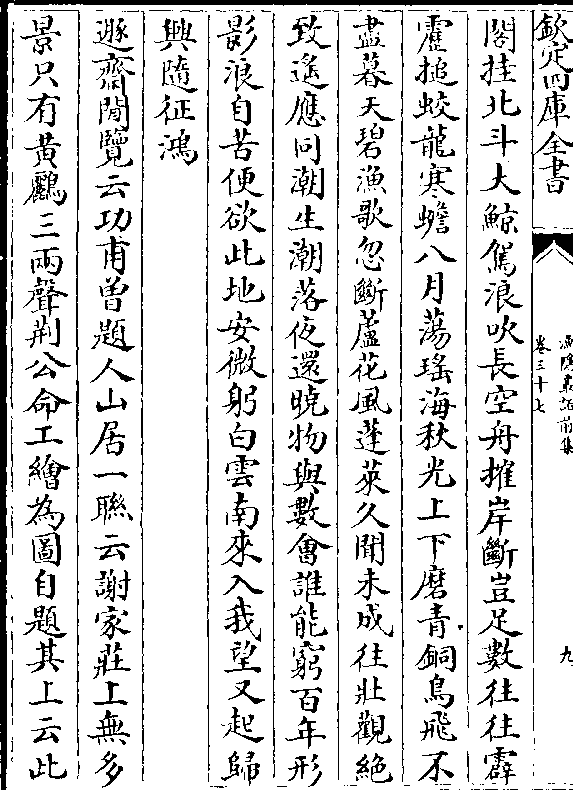 欽定四庫全書
漁隱叢話前集
卷三十七
九
閣挂北斗大鯨駕浪吹長空舟摧岸斷豈足數往往霹
靂搥蛟龍寒蟾八月蕩瑤海秋光上下磨青銅鳥飛不
盡暮天碧漁歌忽斷蘆花風蓬萊久聞未成往壯觀絶
致遙應同潮生潮落夜還曉物與數㑹誰能窮百年形
影浪自苦便欲此地安微躬白雲南來入我望又起歸
興隨征鴻
遯齋閒覽云功甫曽題人山居一聯云謝家莊上無多
景只有黃鸝三兩聲荆公命工繪為圖自題其上云此